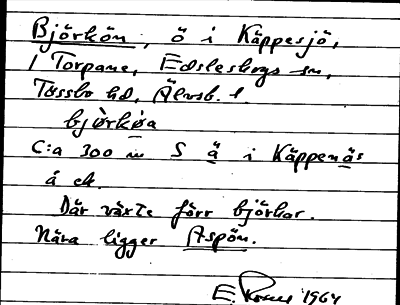 Björkön, ö i Käppesjö,
i Torpane, Edsleskogs sn,
Tössbo hd, Älvsb. l.
bjòrkøa
C:a 300 m S ä i Käppenäs
å ek.
Där växte förr björkar.
Nära ligger Aspön.
E. 1964